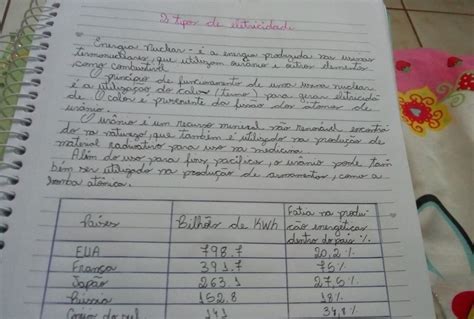 Os tipos de eletricidade
Energia Nuclear - é a energia produzida nas usinas
termonucleares, que utilizam urânio e outros elementos
como combustível
O princípio de funcionamento de uma usina nuclear
é a utilização do calor (termo) para gerar eletricidade
O calor é proveniente da fissão dos átomos de
urânio.
O urânio é um recurso mineral não renovável encontra
do na natureza que também é utilizado na produção de
material radioativo para uso na medicina.
Além do uso para fins pacíficos, o urânio pode tam
bém ser utilizado na produção de armamentos, como a
bomba atômica.
Países Bilhões de KWh Fatia na produ-
ção energética
dentro do país %.
EUA 798.7 20,2 %
França 391.7 75 %
Japão 263.1 27,5 %
Rússia 152.8 18 %
Coreia do sul 141 34,8 %